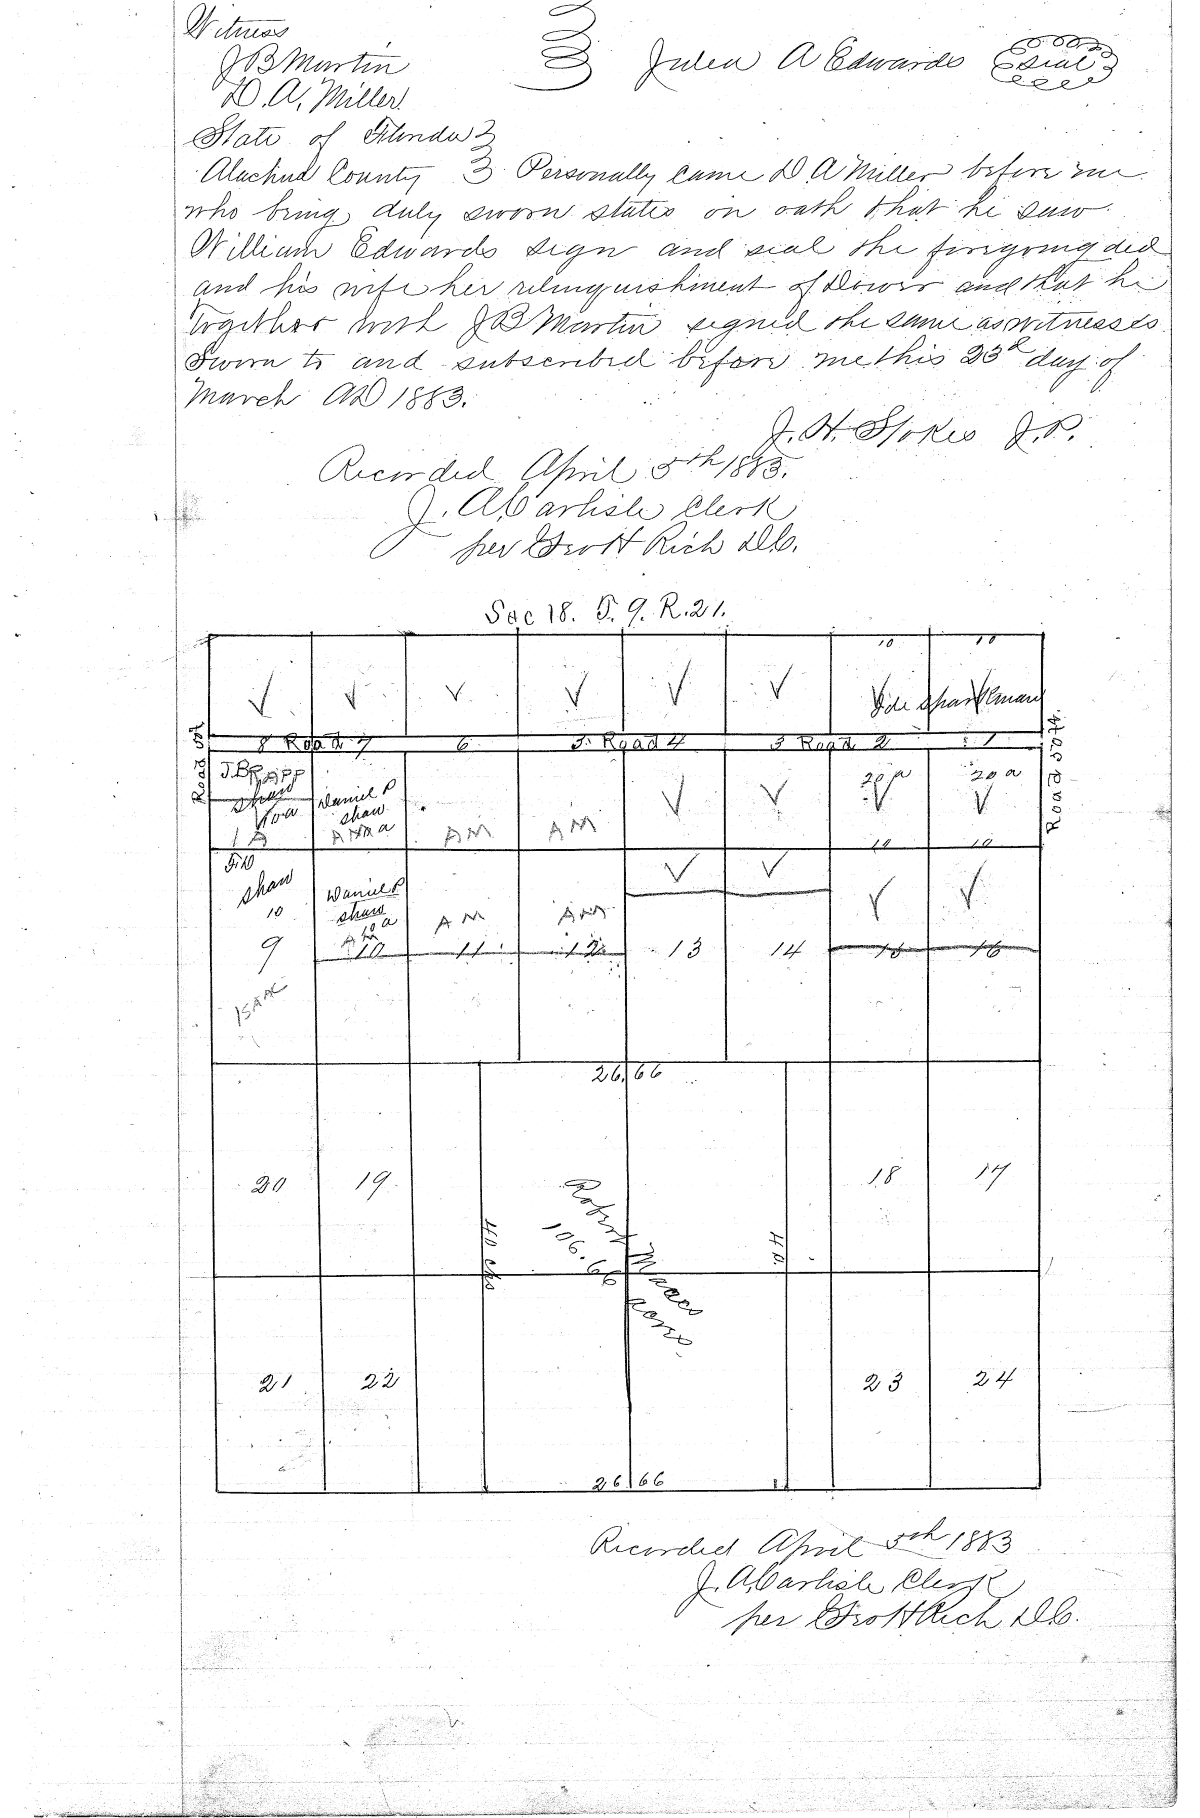 Witness
J B Martin
D. A. Miller
Julea A Edwards seal
State of Florida
Alachua County Personally came D. A Miller before me
who being duly sworn states on oath that he saw
William Edwards sign and seal the foregoing ded
and his wife her relinquishment of Dower and that he
together with J B Martin signed the same as witnesses
Sworn to and subscribed before me this 23d day of
March AD 1883.
J. H. Stokes J.P.
Recorded April 5th 1883.
J. A. Carlisle Clerk
per Geo H Rich D.C.
Sec 18. T. 9. R. 21.
10 10
Road 50ft
8 Road 7 6 5 Road 4 3 Road 2 1
Road 50 ft.
J.B RAPP
shaw
10a
1 A
Daniel P
shaw
a
AM
AM
20 a
20 a
10 10
shaw
10
9
ISAAC
Daniel P
shaw
10 a
AM
10
AM
11
AM
12
13 14 15 16
26.66
20 19 18 17
40 chs
40.
Robert
106.66 acres.
21 22 23 24
26.66
Recorded April 5th 1883
J. A. Carlisle Clerk
per Geo H Rich D.C.